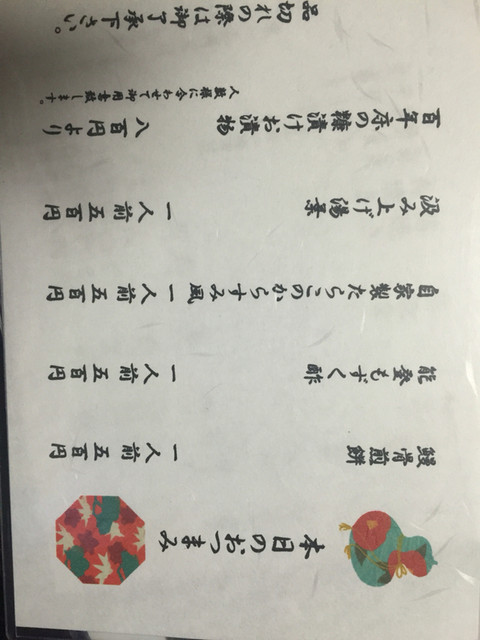 本日のおつまみ
鰻骨煎餅 一人前 五百円
能登もずく酢 一人前 五百円
自家製たらこのからすみ風 一人前 五百円
汲み上げ湯葉 一人前 五百円
百年床の糠漬けお漬物 八百円より
人数様に合わせて御用意致します。
品切れの際は御了承下さい。